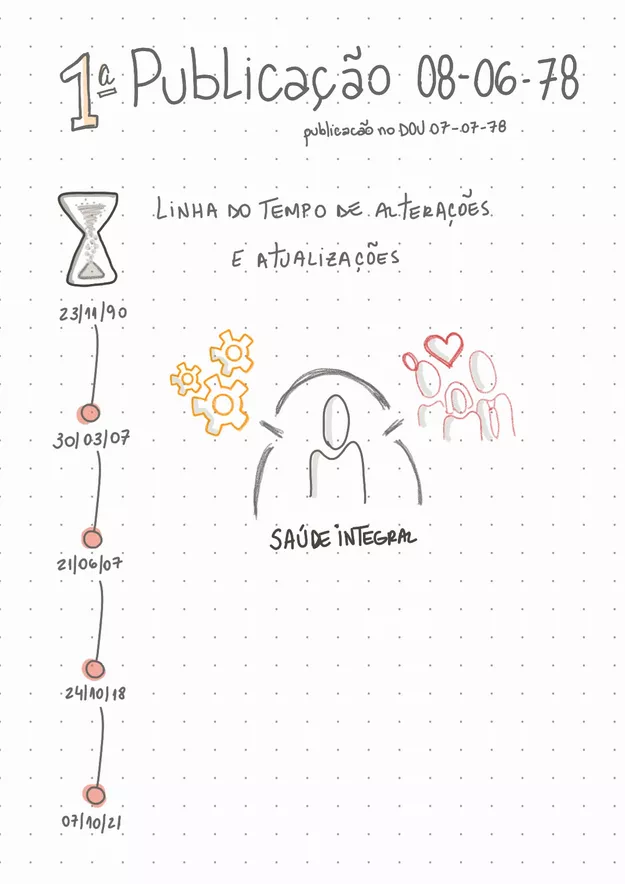 1ª Publicação 08-06-78
publicacão no DOU 07-07-78
LINHA DO TEMPO DE ALTERAÇÕES
E ATUALIZAÇÕES
23/11/90
30/03/07
SAÚDE INTEGRAL
21/06/07
24/10/18
07/10/21